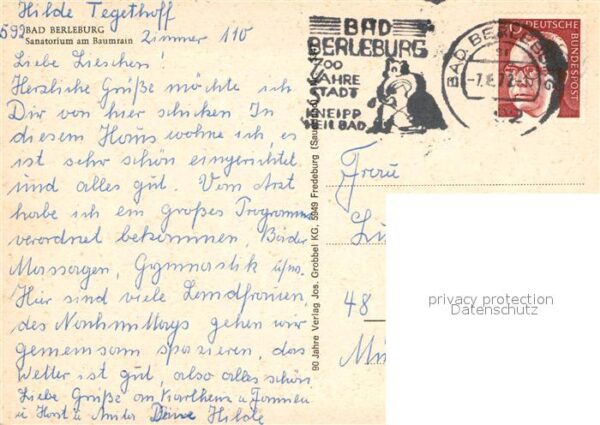 Hilde Tegethoff
592 BAD BERLEBURG
Sanatorium am Baumrain
Zimmer 110
Liebe Lieschen!
Herzliche Grüße möchte ich
Dir von hier schicken. In
diesem Haus wohne ich, es
ist sehr schön eingerichtet
und alles gut. Vom Arzt
habe ich ein großes Programm
verordnet bekommen, Bäder
Massagen, Gymnastik u.s.w.
Hier sind viele Landfrauen,
des Nachmittags gehen wir
gemeinsam spazieren, das
Wetter ist gut, also alles schön
Liebe Grüße an Karlheinz u
u Horst u Deine Hilde
90 Jahre Verlag Jos. Grobbel KG, 5949 Fredeburg
BAD
BERLEBURG
700
JAHRE
STADT
KNEIPP
HEILBAD
BAD BERLEBURG
DEUTSCHE
BUNDESPOST
Frau
48
privacy protection
Datenschutz